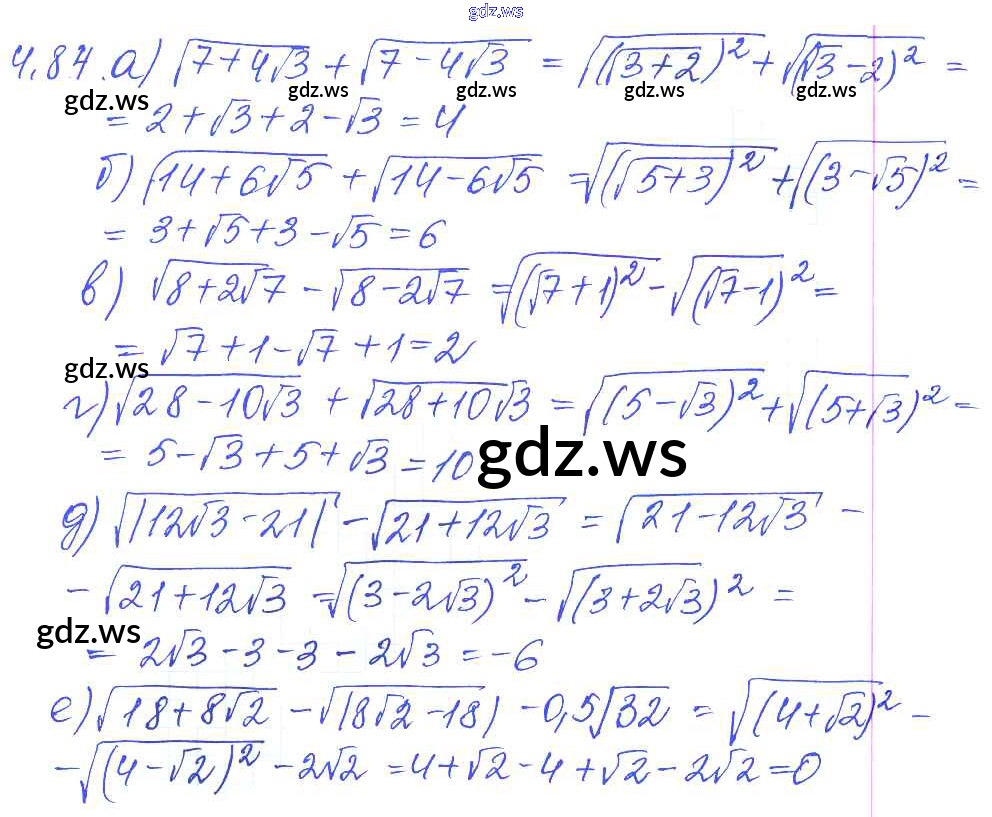 gdz.ws
4.84. а) √(7+4√3) + √(7-4√3) = √((√3+2)²) + √((√3-2)²) =
gdz.ws gdz.ws gdz.ws
= 2+√3+2-√3 = 4
б) √(14+6√5) + √(14-6√5) = √((√5+3)²) + √((3-√5)²) =
= 3+√5+3-√5 = 6
в) √(8+2√7) - √(8-2√7) = √((√7+1)²) - √((√7-1)²) =
= √7+1-√7+1=2
gdz.ws
г) √(28-10√3) + √(28+10√3) = √((5-√3)²) + √((5+√3)²) =
= 5-√3+5+√3 = 10
gdz.ws
д) √|12√3-21| - √(21+12√3) = √(21-12√3) -
- √(21+12√3) = √((3-2√3)²) - √((3+2√3)²) =
gdz.ws
= 2√3-3-3-2√3 = -6
е) √(18+8√2) - √(|8√2-18|) - 0,5√32 = √((4+√2)²) -
- √((4-√2)²) - 2√2 = 4+√2-4+√2-2√2=0